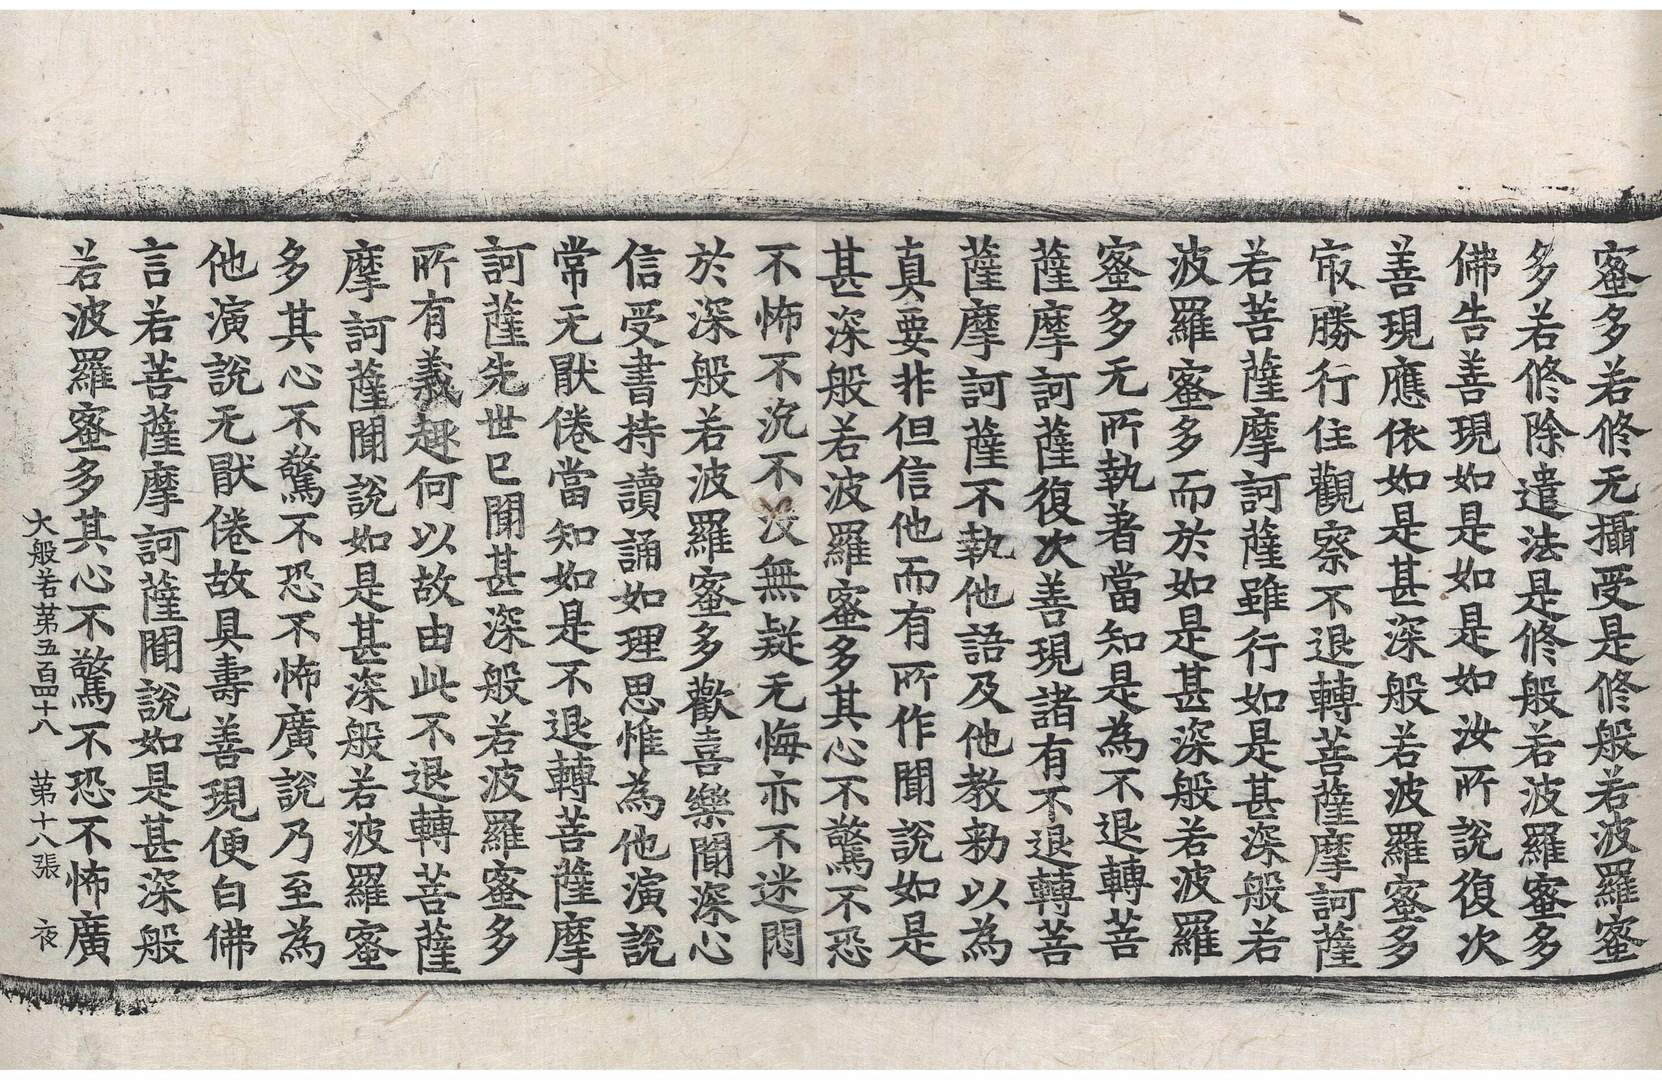 蜜多若修无攝受是修般若波羅蜜
多若修除遣法是修般若波羅蜜多
佛告善現如是如是如汝所說復次
善現應依如是甚深般若波羅蜜多
㝡勝行住觀察不退轉菩薩摩訶薩
若菩薩摩訶薩雖行如是甚深般若
波羅蜜多而於如是甚深般若波羅
蜜多无所執著當知是為不退轉菩
薩摩訶薩復次善現諸有不退轉菩
薩摩訶薩不執他語及他教勑以為
真要非但信他而有所作聞說如是
甚深般若波羅蜜多其心不驚不恐
不怖不沉不没無疑无悔亦不迷悶
於深般若波羅蜜多歡喜樂聞深心
信受書持讀誦如理思惟為他演說
常无猒倦當知如是不退轉菩薩摩
訶薩先世已聞甚深般若波羅蜜多
所有義趣何以故由此不退轉菩薩
摩訶薩聞說如是甚深般若波羅蜜
多其心不驚不恐不怖廣說乃至為
他演說无猒倦故具壽善現便白佛
言若菩薩摩訶薩聞說如是甚深般
若波羅蜜多其心不驚不恐不怖廣
大般若第五百四十八 第十八張 夜